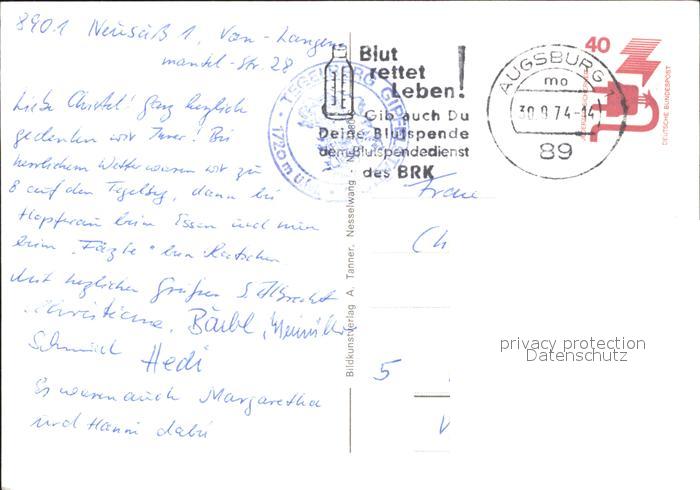 8901 Neusäß 1, Von-Langen-
mantel-Str. 28
Liebe Christel! Ganz herzlich
gedenken wir Ihrer! Bei
herrlichem Wetter waren wir zu
8 auf dem Tegelbg, dann bei
beim Essen und nun
beim
Mit herzlichen Grüßen
Christiane, Bärbl,
Schmid Hedi
Es waren auch Margaretha
und Hanni dabei
TEGELBERG GIPFEL
1720 m
Bildkunstverlag A. Tanner, Nesselwang
Blut
rettet
Leben!
Gib auch Du
Deine Blutspende
dem Blutspendedienst
des BRK
AUGSBURG 1
mo
30.9.74-14
89
40
DEUTSCHE BUNDESPOST
Frau
Ch
5
privacy protection
Datenschutz